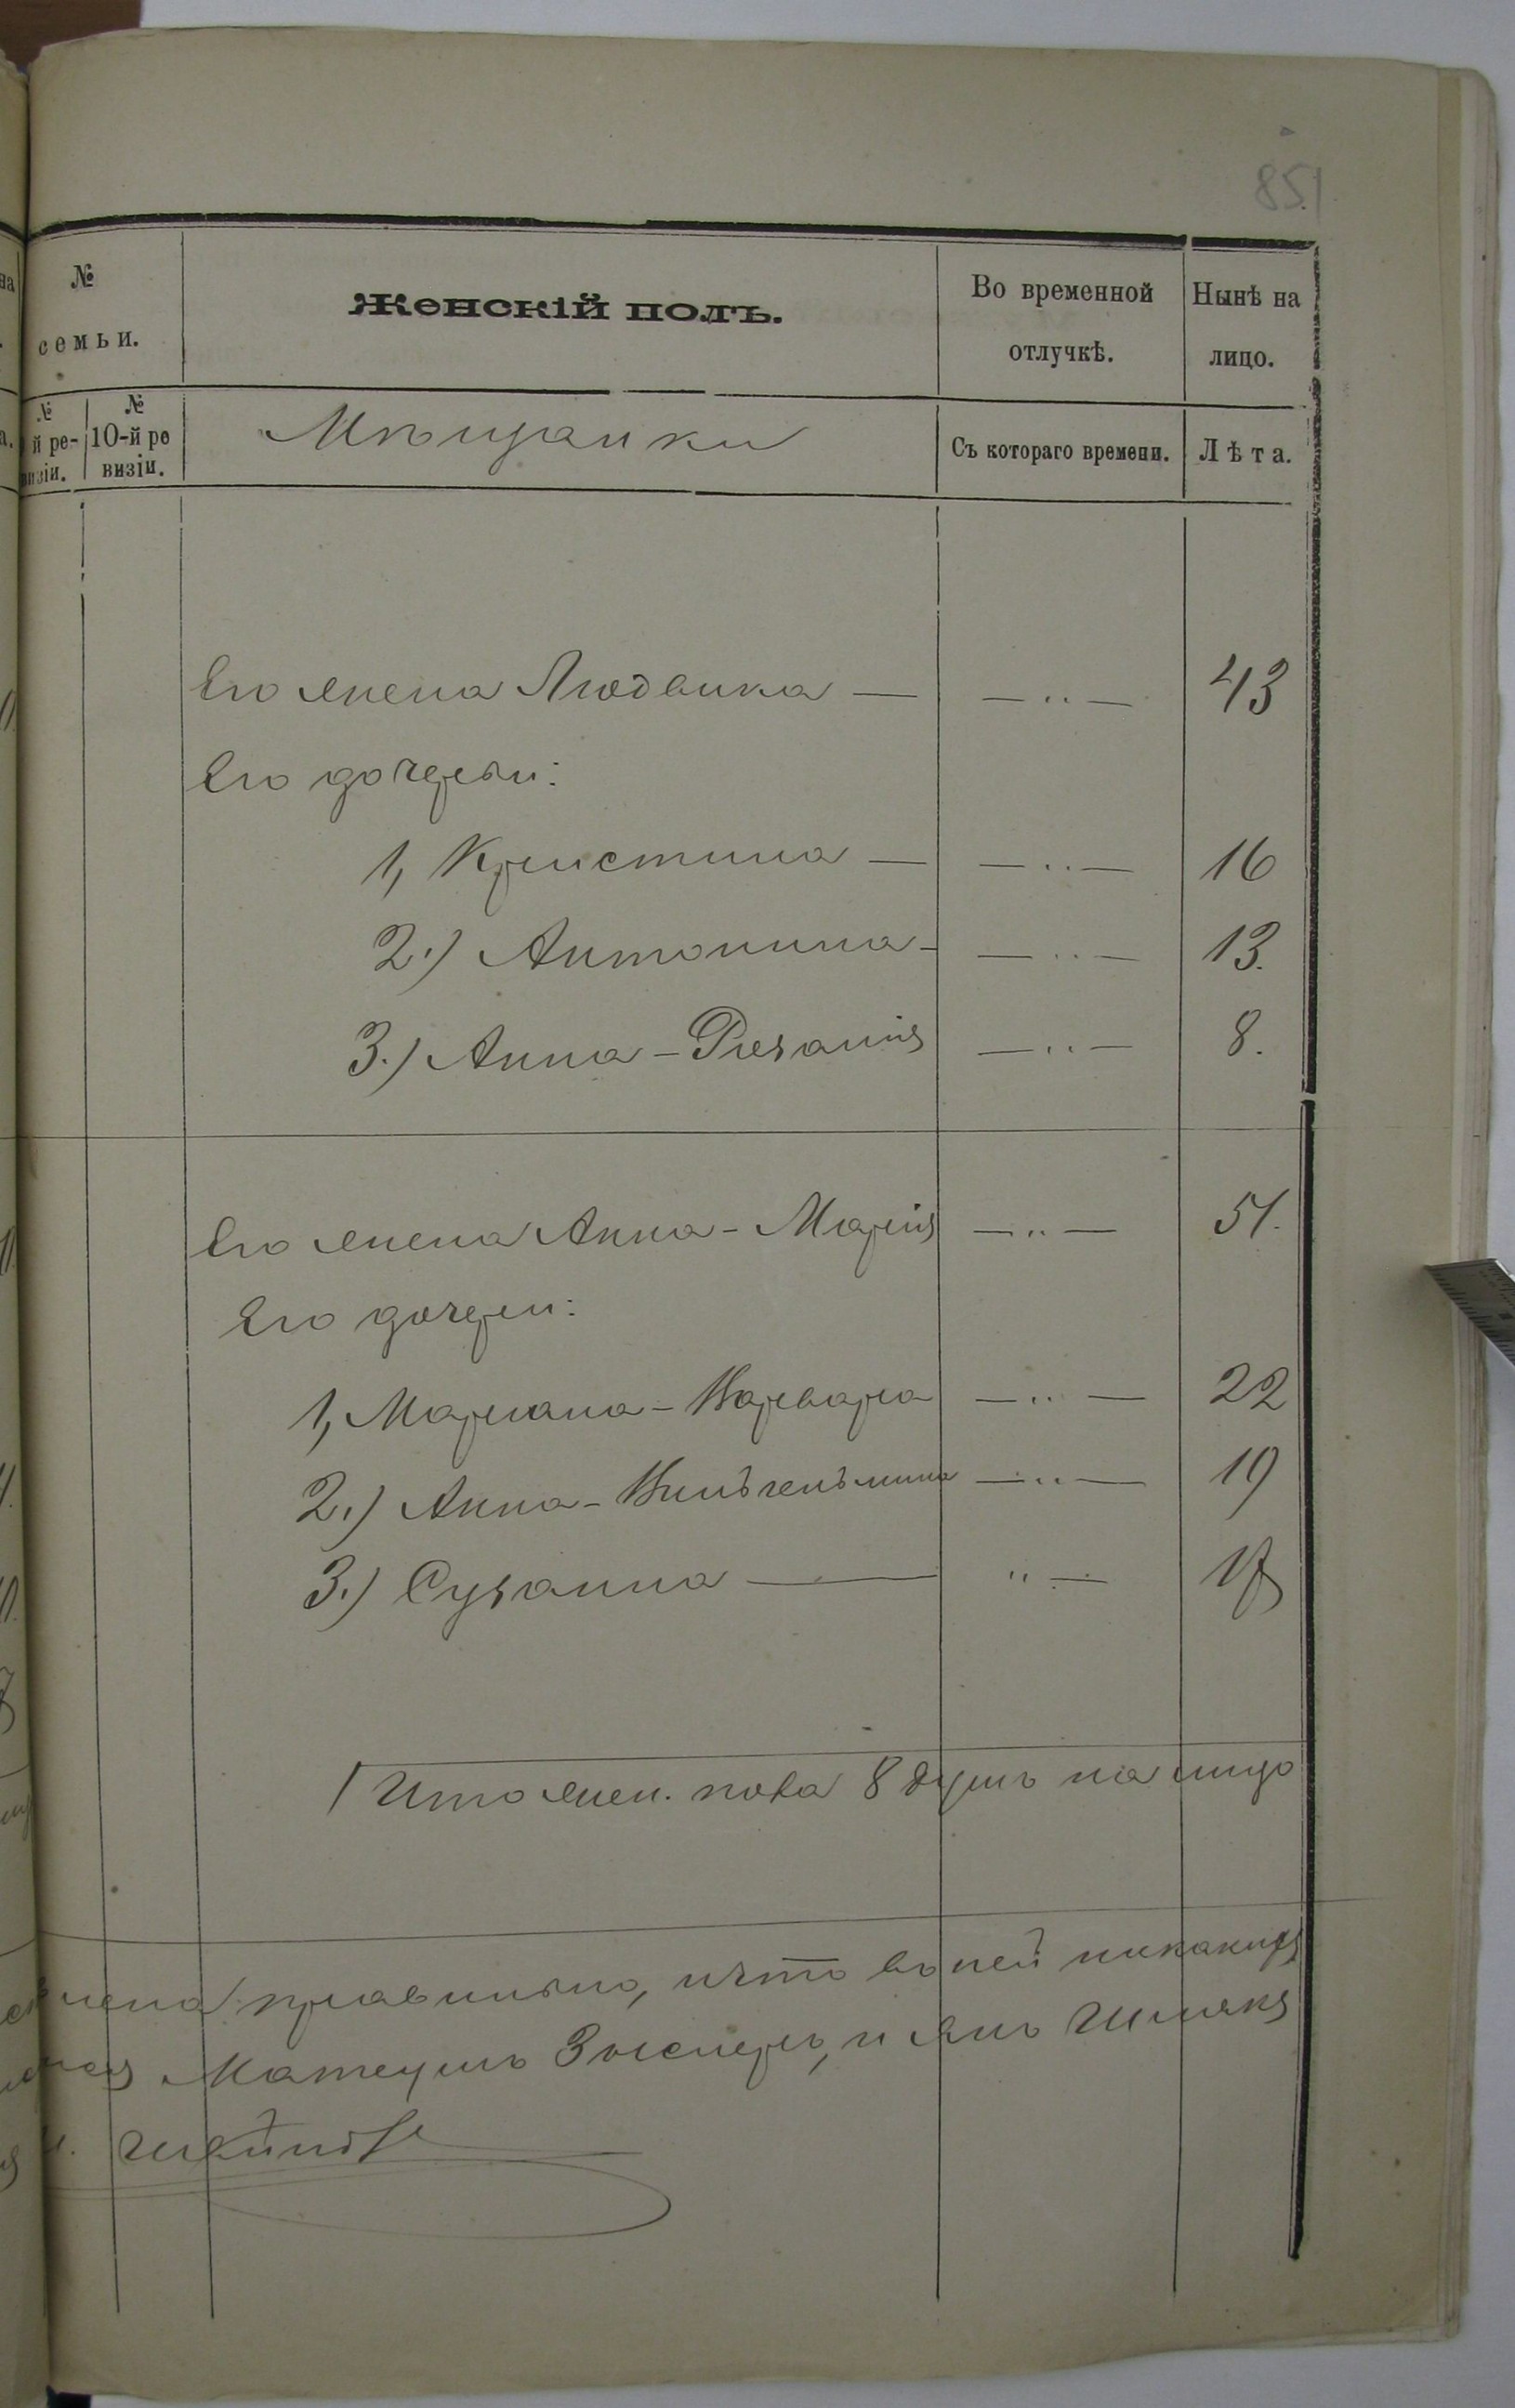 851
№ семьи.
Женскій полъ.
Во временной отлучкѣ.
Нынѣ на лицо.
№ й ре- візіи.
№ 10-й ре визіи.
Мѣщанки
Съ котораго времени.
Лѣта.
Его жена Людвика — — ·· — 43
Его дочери:
1, Кристина — — ·· — 16
2.) Антонина - — ·· — 13.
3.) Анна - Розалія — ·· — 8.
Его жена Анна - Марія — ·· — 51.
Его дочери:
1, Маріана - Варвара — ·· — 22
2.) Анна - Вильгельмина — ·· — 19
3.) Сузанна — ·· — 17
Итого жен. пола 8 душъ на лицо
правильно, и что въ ней никакихъ
Матеушъ и Янъ